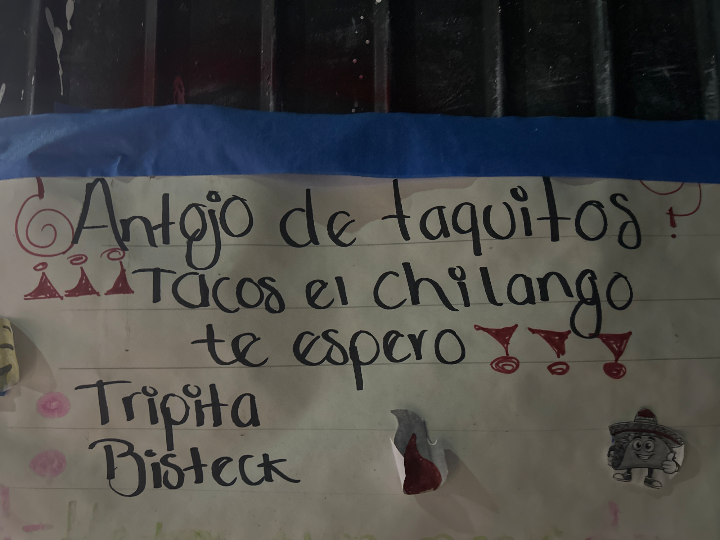 ¿Antojo de taquitos?
¡¡¡Tacos el chilango
te espero!!!
Tripita
Bisteck